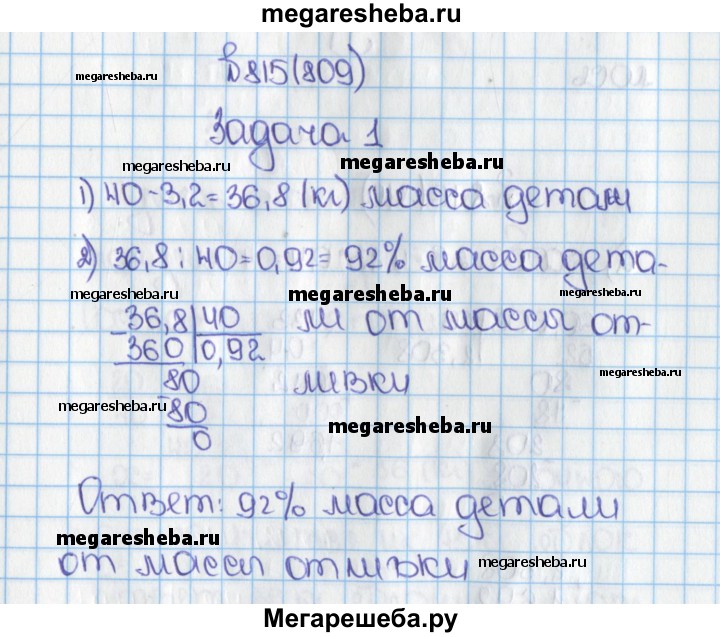 megaresheba.ru
№815(809)
megaresheba.ru
Задача 1
megaresheba.ru megaresheba.ru
1) 40-3,2=36,8 (кг) масса детали
2) 36,8:40=0,92=92% масса дета-
megaresheba.ru megaresheba.ru megaresheba.ru
36,8 40 ли от массы от-
360 0,92
80 ливки
megaresheba.ru
megaresheba.ru
80
megaresheba.ru
0
Ответ: 92% масса детали
megaresheba.ru
от массы отливки megaresheba.ru
Мегарешеба.ру